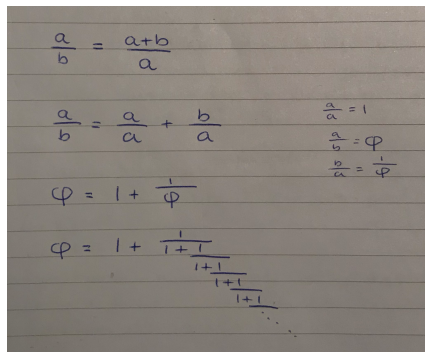 a/b = a+b/a
a/b = a/a + b/a
a/a = 1
a/b = φ
b/a = 1/φ
φ = 1 + 1/φ
φ = 1 + 1/1+1/1+1/1+1/1+1/.....